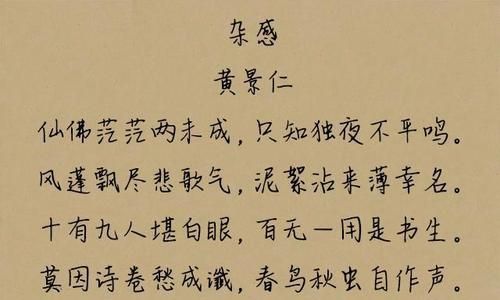 杂感
黄景仁
仙佛茫茫两未成，只知独夜不平鸣。
风蓬飘尽悲歌气，泥絮沾来薄幸名。
十有九人堪白眼，百无一用是书生。
莫因诗卷愁成谶，春鸟秋虫自作声。